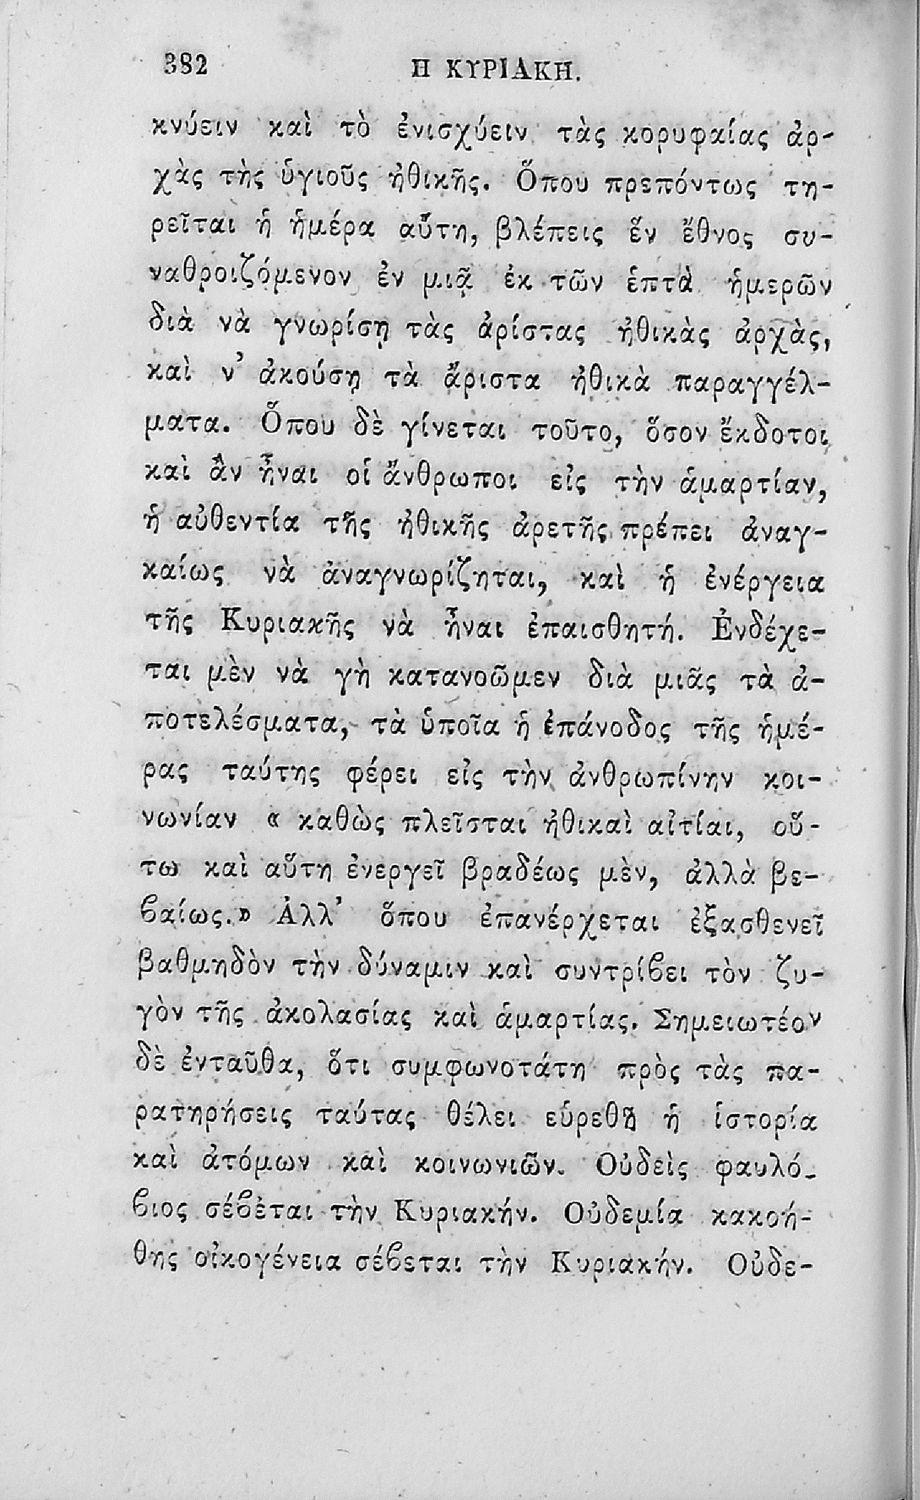 382 Η ΚΥΡΙΑΚΗ.
κνύειν καὶ τὸ ἐνισχύειν τὰς κορυφαίας ἀρ-
χὰς τὴς ὑγιοῦς ἠθικῆς. Ὅπου πρεπόντως τη-
ρεῖται ἡ ἡμέρα αὕτη, βλέπεις ἕν ἔθνος συ-
ναθροιζόμενον ἐν μιᾷ ἐκ τῶν ἑπτὰ ἡμερῶν
διὰ νὰ γνωρίσῃ τὰς ἀρίστας ἠθικὰς ἀρχὰς,
καὶ ν’ ἀκούσῃ τὰ ἄριστα ἠθικὰ παραγγέλ-
ματα. Ὅπου δὲ γίνεται τοῦτο, ὅσον ἔκδοτοι
καὶ ἂν ἦναι οἱ ἄνθρωποι εἰς τὴν ἁμαρτίαν,
ἡ αὐθεντία τῆς ἠθικῆς ἀρετῆς πρέπει ἀναγ-
καίως νὰ ἀναγνωρίζηται, καὶ ἡ ἐνέργεια
τῆς Κυριακῆς νὰ ἦναι ἐπαισθητή. Ἐνδέχε-
ται μὲν νὰ γὴ κατανοῶμεν διὰ μιᾶς τὰ ἀ-
ποτελέσματα, τὰ ὁποῖα ἡ ἐπάνοδος τῆς ἡμέ-
ρας ταύτης φέρει εἰς τὴν ἀνθρωπίνην κοι-
νωνίαν « καθὼς πλεῖσται ἠθικαὶ αἰτίαι, οὕ-
τω καὶ αὕτη ἐνεργεῖ βραδέως μὲν, ἀλλὰ βε-
ϐαίως.» Ἀλλ’ ὅπου ἐπανέρχεται ἐξασθενεῖ
βαθμηδὸν τὴν δύναμιν καὶ συντρίϐει τὸν ζυ-
γὸν τῆς ἀκολασίας καὶ ἁμαρτίας. Σημειωτέον
δὲ ἐνταῦθα, ὅτι συμφωνοτάτη πρὸς τὰς πα-
ρατηρήσεις ταύτας θέλει εὑρεθῆ ἡ ἱστορία
καὶ ἀτόμων καὶ κοινωνιῶν. Οὐδεὶς φαυλό-
ϐιος σέϐεται τὴν Κυριακήν. Οὐδεμία κακοή-
θης οἰκογένεια σέϐεται τὴν Κυριακήν. Οὐδε-